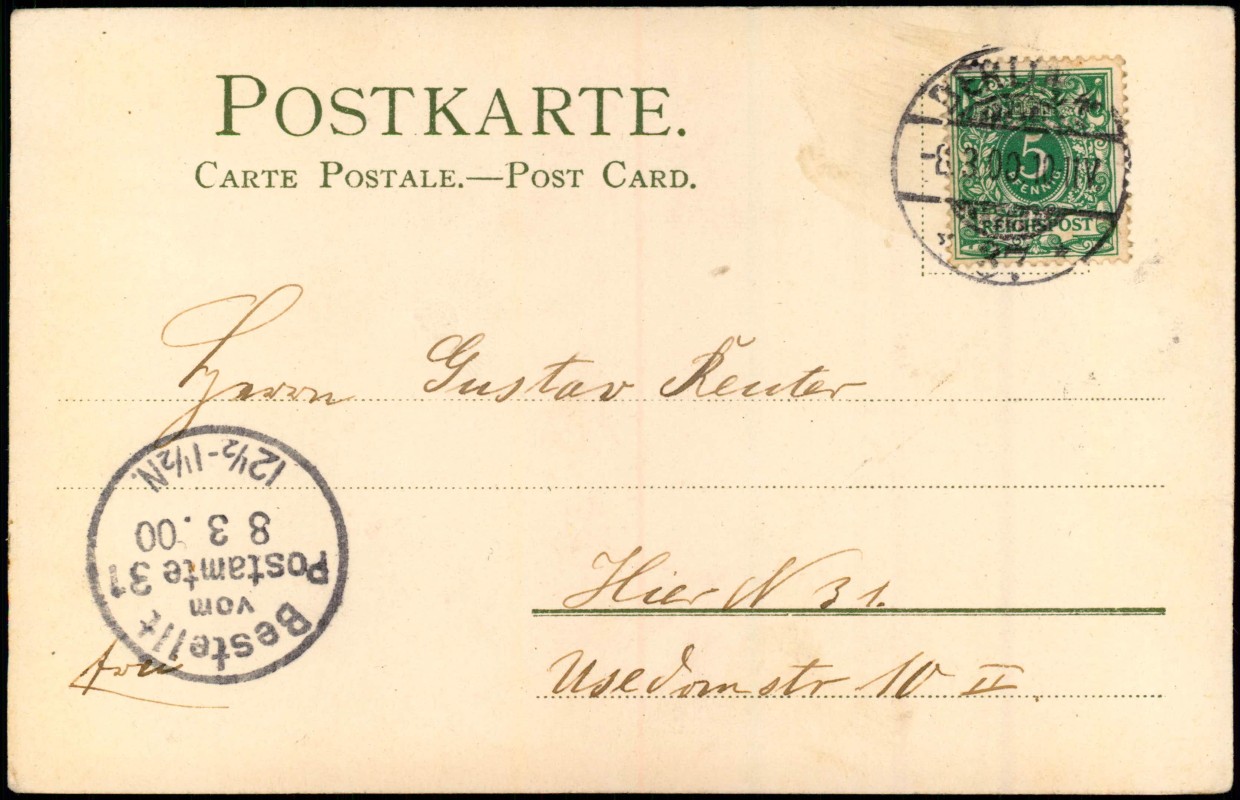 POSTKARTE.
CARTE POSTALE.—POST CARD.
BERLIN
8.3.00.
5
PFENNIG
REICHSPOST
Herrn Gustav Reuter
Hier N 31.
Usedomstr 10 II
Bestellt
vom
Postamte 31
8 3. 00
12½-1½N.